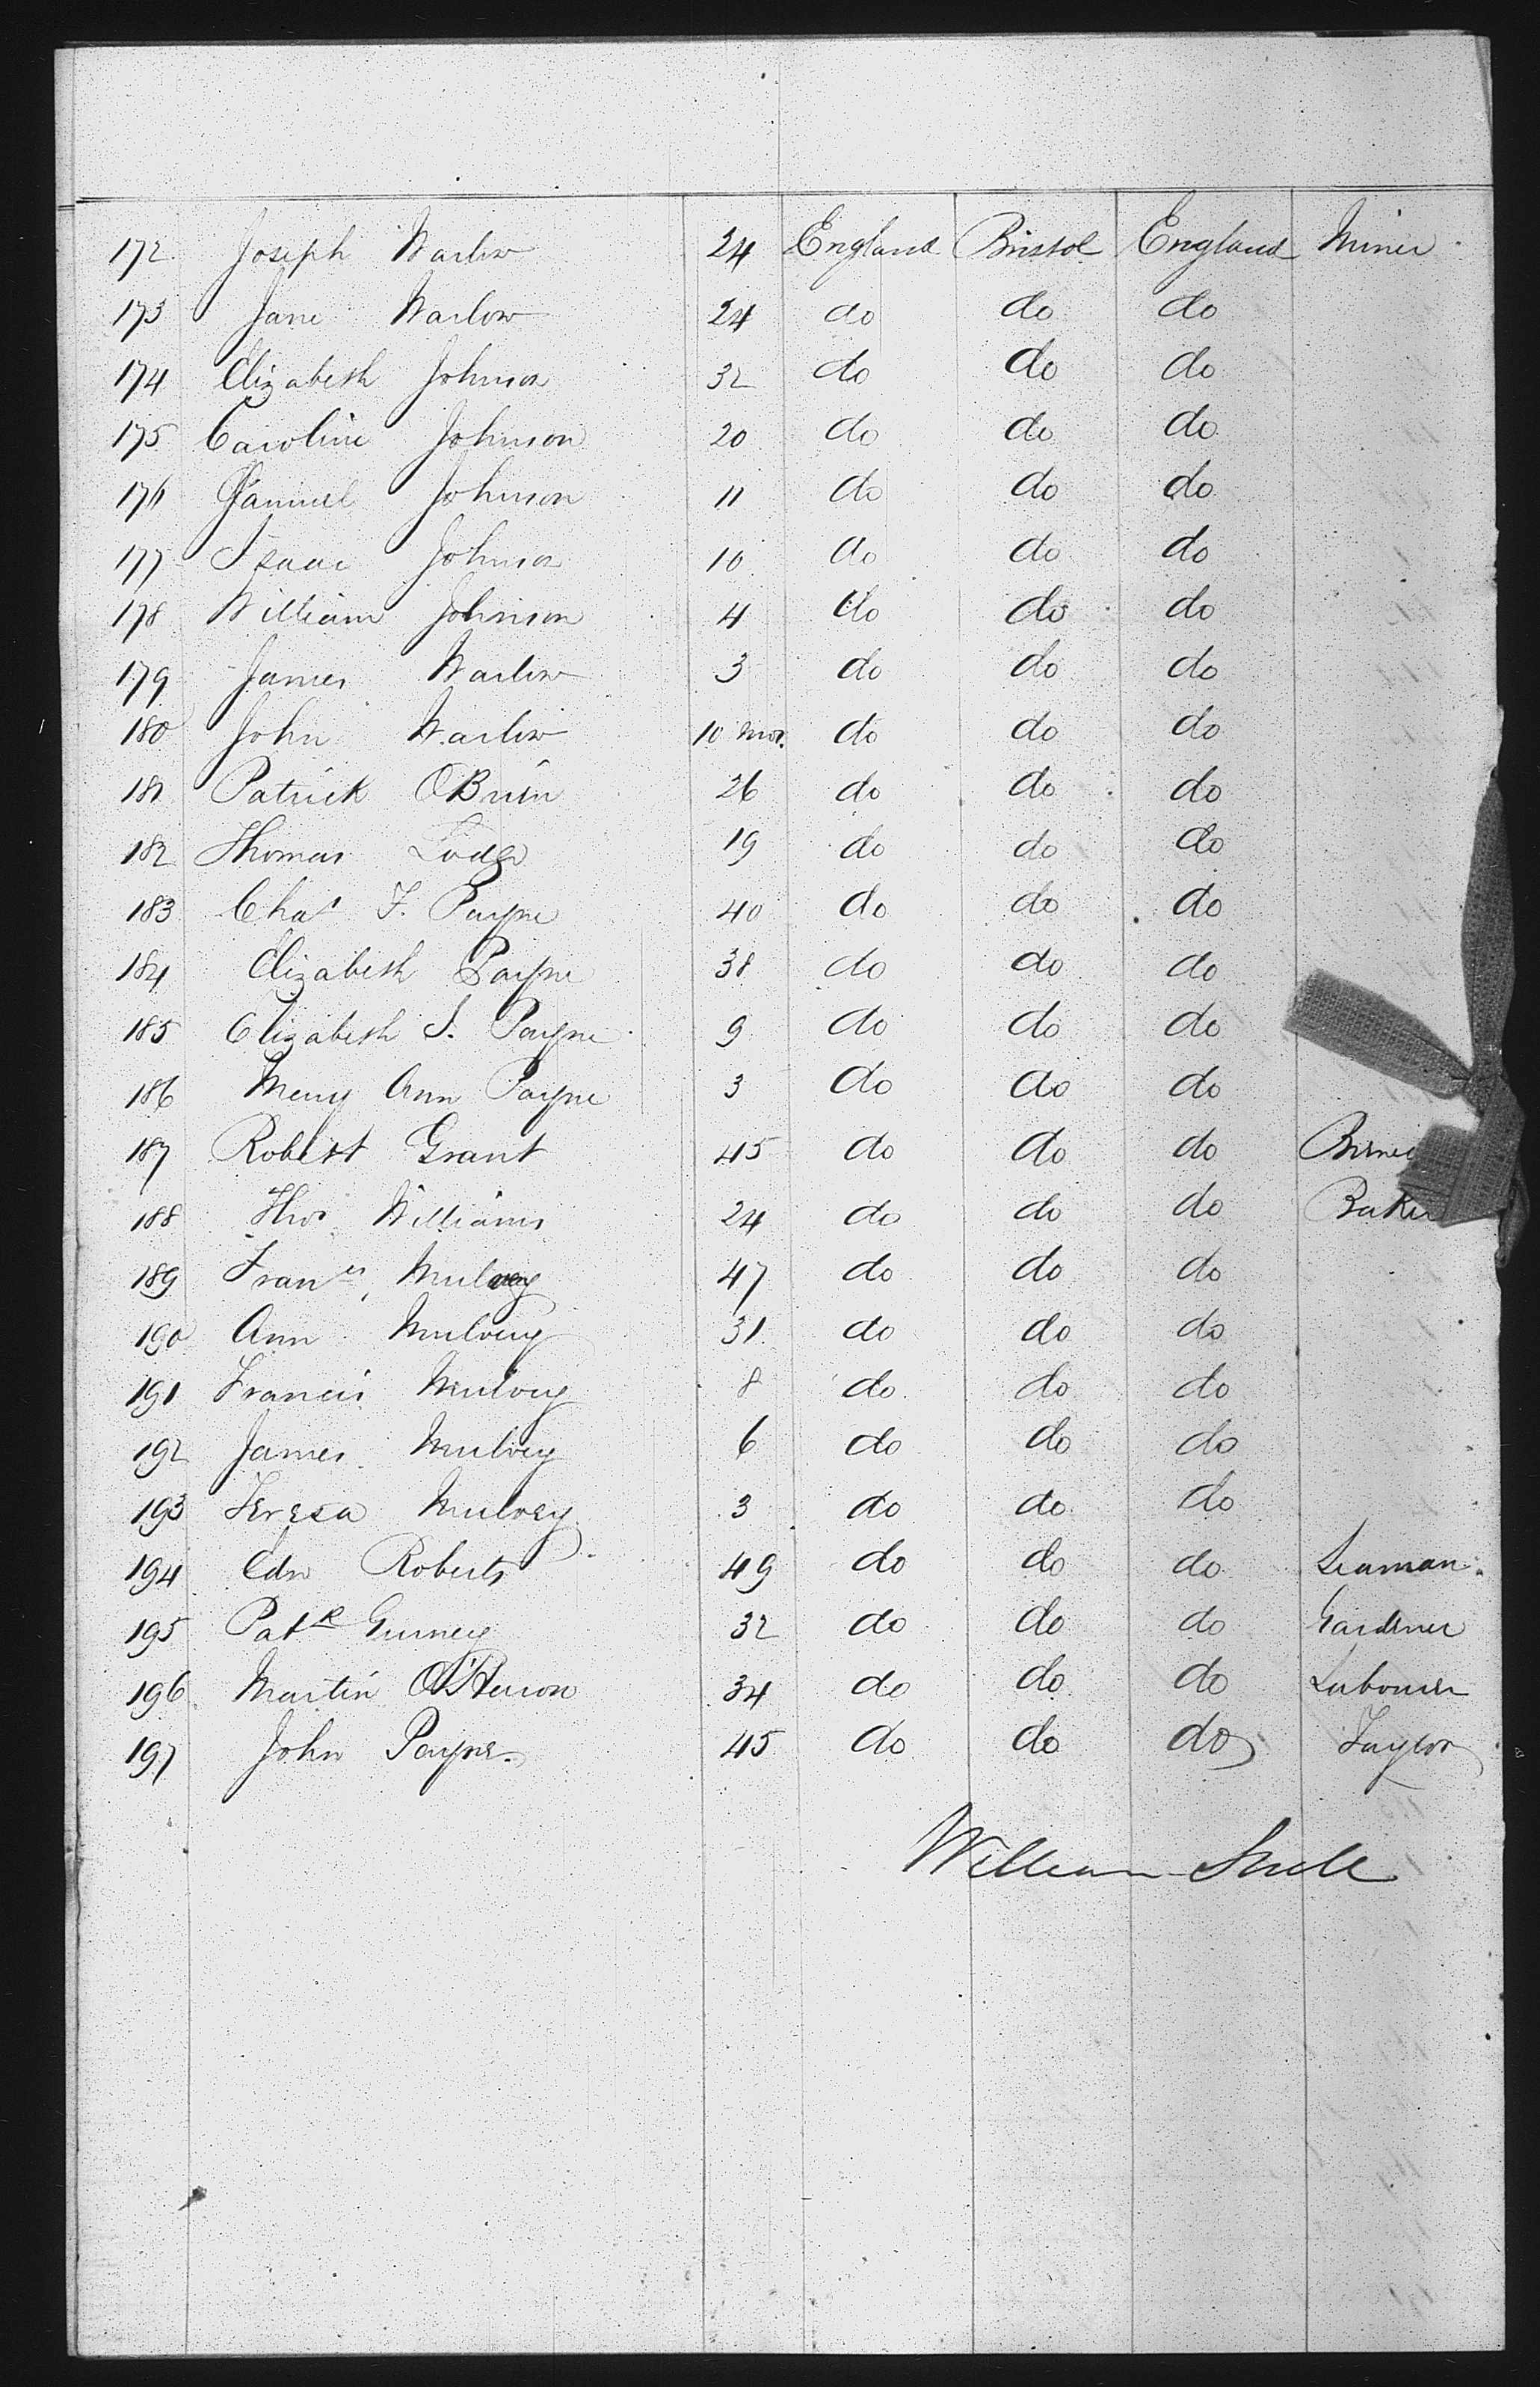 172 Joseph Warlow 24 England Bristol England Miner
173 Jane Warlow 24 do do do
174 Elizabeth Johnson 32 do do do
175 Caroline Johnson 20 do do do
176 Samuel Johnson 11 do do do
177 Isaac Johnson 10 do do do
178 William Johnson 4 do do do
179 James Warlow 3 do do do
180 John Warlow 10 mos. do do do
181 Patrick OBrien 26 do do do
182 Thomas 19 do do do
183 Chas F. Payne 40 do do do
184 Elizabeth Payne 38 do do do
185 Elizabeth S. Payne 9 do do do
186 Mary Ann Payne 3 do do do
187 Robert Grant 45 do do do
188 Thos Williams 24 do do do Baker
189 Francs Mulvey 47 do do do
190 Ann Mulvey 31 do do do
191 Francis Mulvey 8 do do do
192 James Mulvey 6 do do do
193 Teresa Mulvey 3 do do do
194 Edw Roberts 49 do do do Seaman
195 Patk Gurney 32 do do do Gardener
196 Martin 34 do do do Labourer
197 John Payne 45 do do do Taylor
William